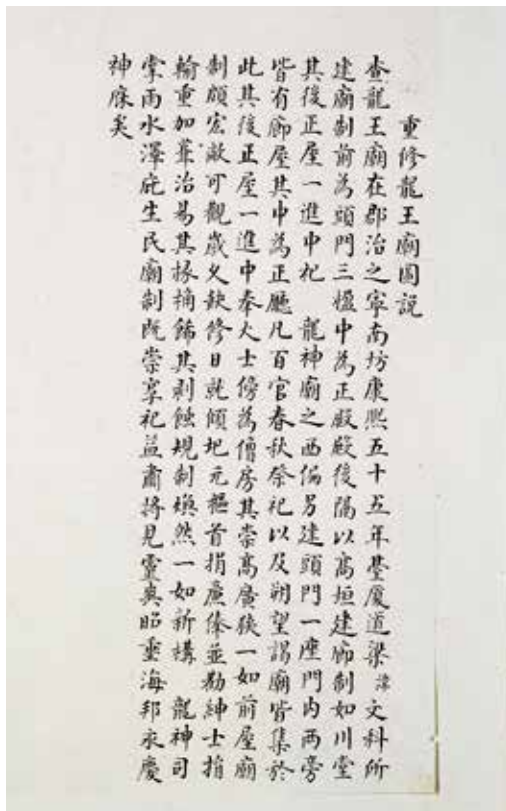 重修龍王廟圖説
查龍王廟在郡治之寧南坊康熙五十五年臺廈道梁諱文科所
建廟制前為頭門三楹中為正殿殿後隔以高垣建廊制如川堂
其後正屋一進中祀　龍神廟之西偏另建頭門一座門内兩旁
皆有廊屋其中為正廳凡百官春秋祭祀以及朔望謁廟皆集於
此其後正屋一進中奉大士傍為僧房其崇高廣狹一如前屋廟
制頗宏敞可觀歲久缺修日就傾圮元樞首捐廉俸並勸紳士捐
輸重加葺治易其椽桷飾其剥蝕規制煥然一如新構　龍神司
掌雨水澤庇生民廟制既崇享祀益肅將見靈爽昭垂海邦永慶
神庥矣